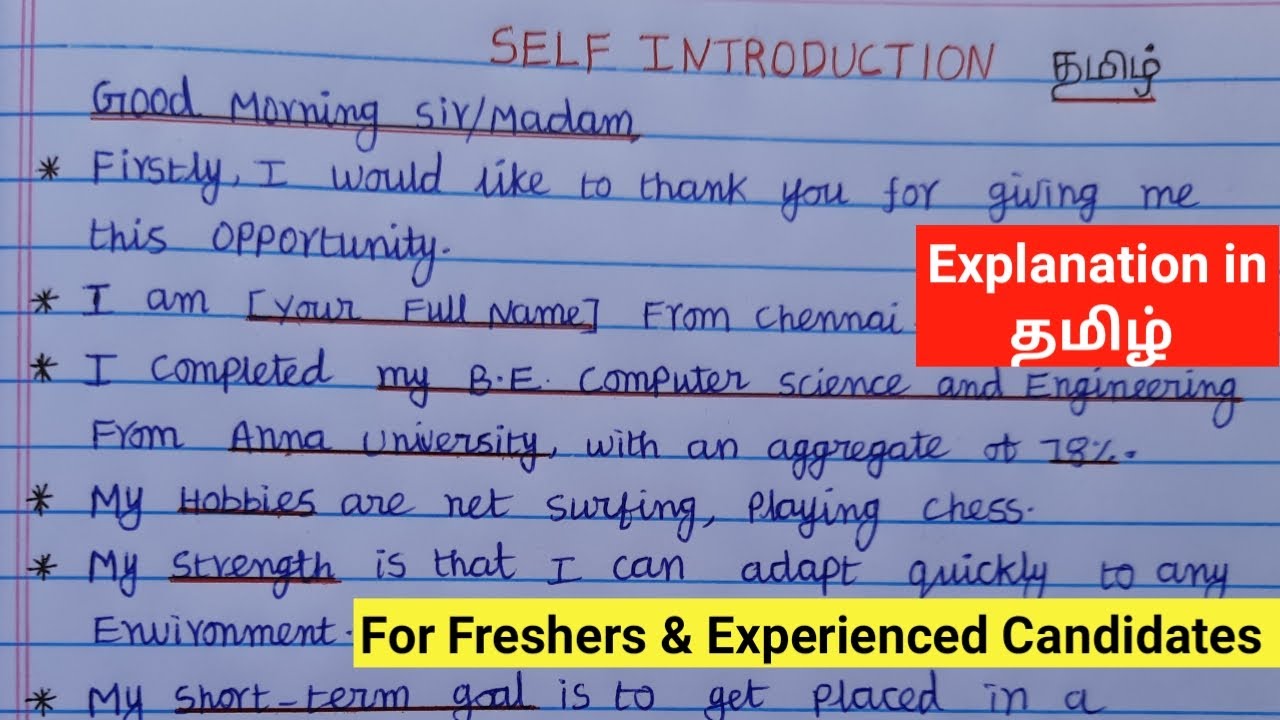 SELF INTRODUCTION தமிழ்
Good Morning Sir/Madam
* Firstly, I would like to thank you for giving me
this opportunity.
Explanation in
தமிழ்
* I am [Your Full Name] From Chennai
* I completed my B.E. Computer science and Engineering
From Anna University, with an aggregate of 78%.
* My Hobbies are net surfing, playing chess.
* My Strength is that I can adapt quickly to any
Environment.
For Freshers & Experienced Candidates
* My short-term goal is to get placed in a